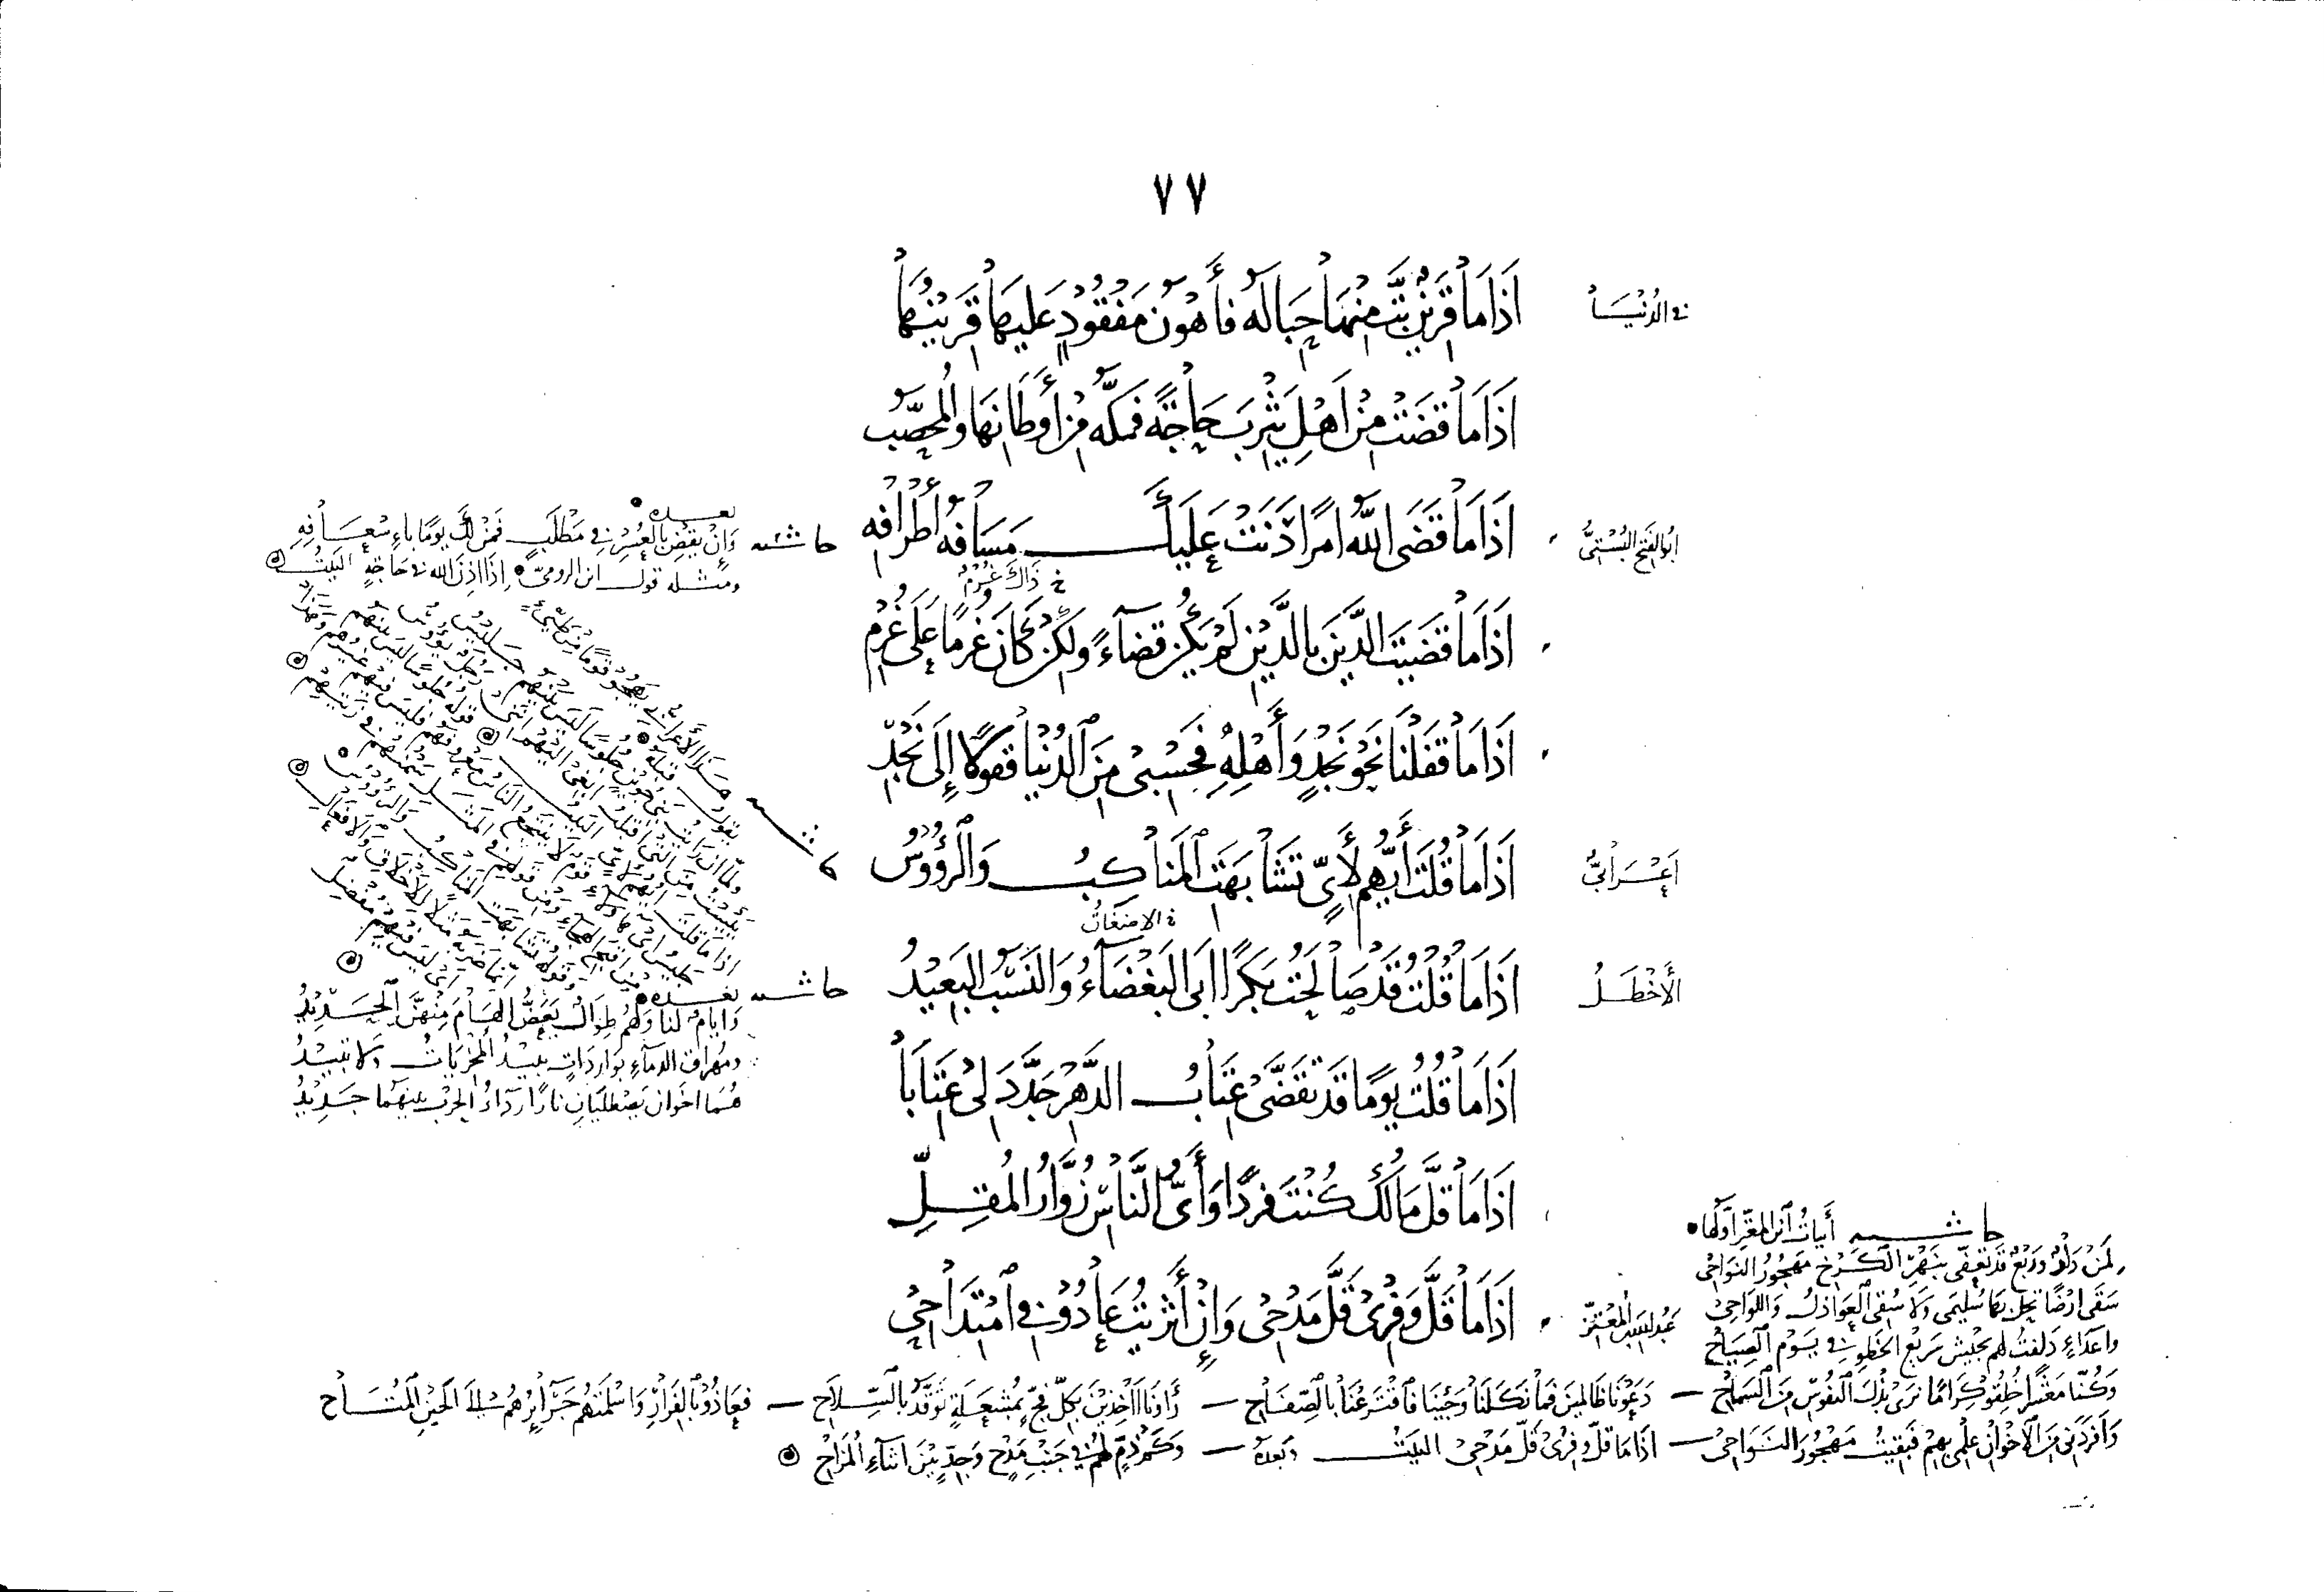 ٧٧
في الدُنْيَا
إِذَا مَا قَرِيْنٌ بَتَّ مِنْهَا حِبَالَهُ فَأَهْوَنُ مَفْقُوْدٍ عَلَيْهَا قَرِيْنُهَا
إِذَا مَا قَضَتْ مِنْ أَهْلِ يَثْرِبَ حَاجَةً فَمَكَّةُ مِنْ أَوْطَانِهَا وَالمُحَصَّبُ
أبُو الفَتْحِ البُسْتِيُّ
إِذَا مَا قَضَى اللَّهُ أَمْرًا دَنَتْ عَلَيْكَ مَسَافَةُ أَطْرَافِهِ
حاشية
بعده
وَإِنْ يَقْضِ بِالعُسْرِ فِي مَطْلَبٍ فَمَنْ لَكَ يَوْمًا بِإِسْعَافِهِ
ومثله قول ابن الرومي إِذَا أذِنَ اللَّه في حَاجَةٍ البَيْتُ
خ ذَاكَ غُرْمٌ
إِذَا مَا قَضَيْتَ الدَّيْنَ بِالدَّيْنِ لَمْ يَكُنْ قَضَاءً وَلَكِنْ كَانَ غُرْمًا عَلَى غُرْمِ
إِذَا مَا قَفَلْنَا نَحْوَ نَجْدٍ وَأَهْلِهِ فَحَسْبِيْ مِنَ الدُّنْيَا قُفُولًا إِلَى نَجْدِ
أَعْرَابِيٌّ
إِذَا مَا قُلْتَ أَيُّهُم لِأَيٍّ تَشَابَهَتِ المَنَاكِبُ وَالرُّؤُوْسُ
حاشية
هَذَا الأَعْرَابِي يَهْجُو قَوْمًا مِنْ طَيِّئٍ
يقول قبله
وَلَمَّا أَنْ رَأَيْتُ بَنِي جُوَيْنٍ جُلُوْسًا لَيْسَ بَيْنَهُمُ جَلِيْسُ
يَئِسْتُ مِنَ الَّتِي أَقْبَلْتُ أَبْغِي إِلَيْهِم إِنَّنِي رَجُلٌ يَؤُوْسُ
إِذَا مَا قُلْتَ أَيُّهُم لِأَيٍّ البَيْتُ
خ الأضْغَانُ
الأَخْطَلُ
إِذَا مَا قُلْتُ قَدْ صَالَحْتُ بَكْرًا أَبَى البَغْضَاءُ وَالنَّسَبُ البَعِيْدُ
حاشية
بعده
وَأَيَّامٌ لَنَا وَلَهُمْ طِوَالٌ يَعَضُّ الهَامَ مِنْهُنَّ الحَدِيْدُ
وَمُهْرَاقُ الدِّمَاءِ بِوَارِدَاتٍ يَبِيْدُ المُخْزِيَاتُ وَلَا تَبِيْدُ
هُمَا أَخَوَانِ يَصْطَلِيَانِ نَارًا رِدَاءُ الحَرْبِ بَيْنَهُمَا جَدِيْدُ
إِذَا مَا قُلْتُ يَوْمًا قَدْ تَقَضَّى عِتَابُ الدَّهْرِ جَدَّدَ لِيْ عِتَابَا
إِذَا مَا قَلَّ مَالُكَ كُنْتَ فَرْدًا وَأَيُّ النَّاسِ زُوَّارُ المُقِلِّ
عَبْدُ اللَّهِ بْنُ المُعْتَزِّ
إِذَا مَا قَلَّ وَفْرِيْ قَلَّ مَدْحِيْ وَإِنْ أَثْرَيْتُ عَادُوْا فِي امْتِدَاحِيْ
حاشية أَبيَاتُ ابْن المعْتَزِّ أوَّلُهَا
لِمَنْ دَارٌ وَرَبْعٌ قَدْ تَعَفَّى بِنَهْرِ الكَرْخِ مَهْجُوْرُ النَّوَاحِيْ
سَقَى أَرْضًا تَحِلُّ بِهَا سُلَيْمَى وَلَا سَقَى العَوَاذِلَ وَاللَّوَاحِيْ
وَأَعْدَاءٍ دَلَفْتُ لَهُم بِجَيْشٍ سَرِيْعِ الخَطْوِ فِي يَوْمِ الصِّيَاحِ
وَكُنَّا مَعْشَرًا خُلِقُوْا كِرَامًا نَرَى بَذْلَ النُّفُوْسِ مِنَ السَّمَاحِ — دَعَوْنَا ظَالِمِيْنَ فَمَا نَكَلْنَا وَجِئْنَا فَاقْتَرَعْنَا بِالصِّفَاحِ — رَأَوْنَا آخِذِيْنَ بِكُلِّ فَجٍّ بِمُشْعَلَةٍ تَوَقَّدُ بِالسِّلَاحِ — فَعَاذُوْا بِالفِرَارِ وَأَسْلَمَتْهُم جَرَائِرُهُمْ إِلَى الحَيْنِ المُتَاحِ
وَأَفْرَدَنِي مِنَ الإِخْوَانِ عِلْمِي بِهِمْ فَبَقِيْتُ مَهْجُوْرَ النَّوَاحِيْ — إِذَا مَا قَلَّ وَفْرِيْ قَلَّ مَدْحِيْ البَيْتُ وَبَعْدَهُ — وَكَمْ ذَمٍّ لَهُمْ فِي جَنْبِ مَدْحٍ وَجِدٍّ بَيْنَ أَثْنَاءِ المُزَاحِ